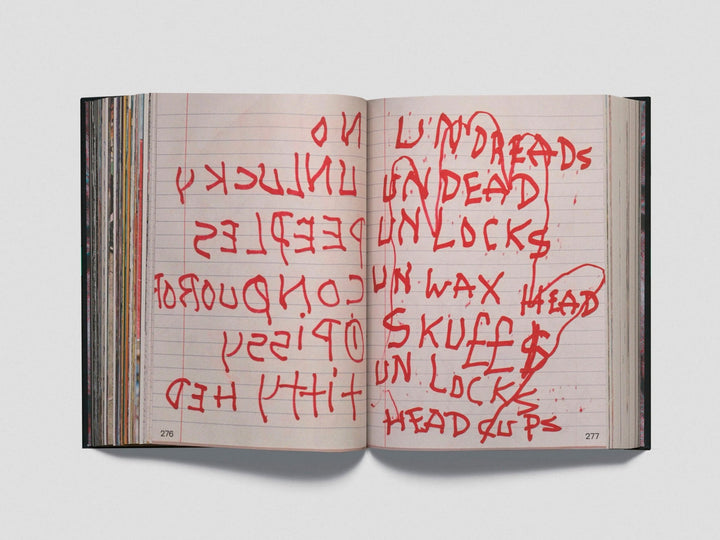 NO
UNLUCKY
PEEPLES
CONQUOROR
PISSY
TITTY HED
276
UNDREADS
UNDEAD
UN LOCK$
UN WAX HEAD
$KUff$
UN LOCKS
HEAD CUPS
277